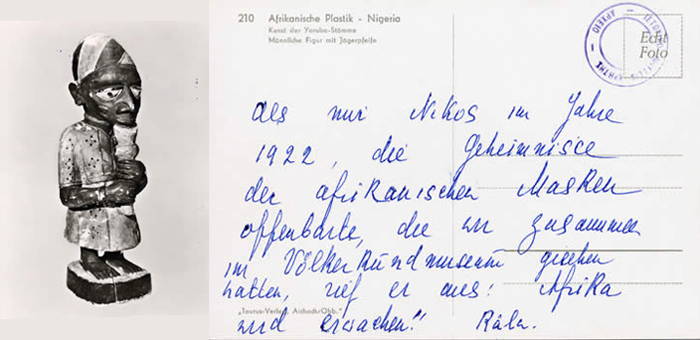 210 Afrikanische Plastik - Nigeria
Kunst der Yoruba-Stämme
Männliche Figur mit Jägerpfeife
Echt
Foto
Als mir Nikos im Jahre
1922, die Geheimnisse
der afrikanischen Masken
offenbarte, die wir zusammen
im Völkerkundmuseum gesehen
hatten, rief er aus: Afrika
wird erwachen!"
„Taurus-Verlag, Aichach/Obb."